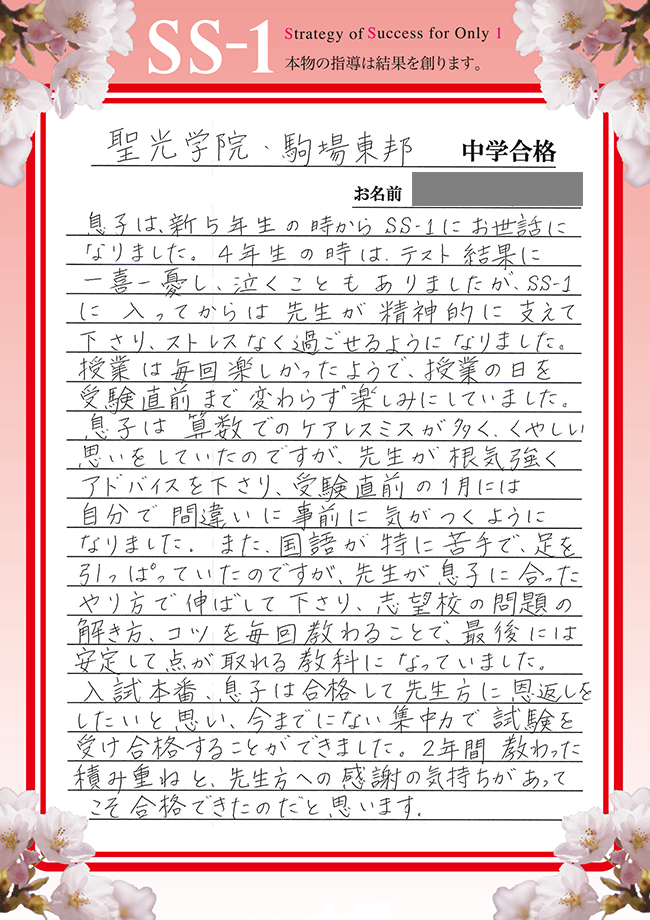 SS-1
Strategy of Success for Only 1
本物の指導は結果を創ります。
聖光学院・駒場東邦 中学合格
お名前
息子は、新5年生の時からSS-1にお世話に
なりました。4年生の時は、テスト結果に
一喜一憂し、泣くこともありましたが、SS-1
に入ってからは先生が精神的に支えて
下さり、ストレスなく過ごせるようになりました。
授業は毎回楽しかったようで、授業の日を
受験直前まで変わらず楽しみにしていました。
息子は算数でのケアレスミスが多く、くやしい
思いをしていたのですが、先生が根気強く
アドバイスを下さり、受験直前の1月には
自分で間違いに事前に気がつくように
なりました。また、国語が特に苦手で、足を
引っぱっていたのですが、先生が息子に合った
やり方で伸ばして下さり、志望校の問題の
解き方、コツを毎回教わることで、最後には
安定して点が取れる教科になっていました。
入試本番、息子は合格して先生方に恩返しを
したいと思い、今までにない集中力で試験を
受け合格することができました。2年間教わった
積み重ねと、先生方への感謝の気持ちがあって
こそ合格できたのだと思います。